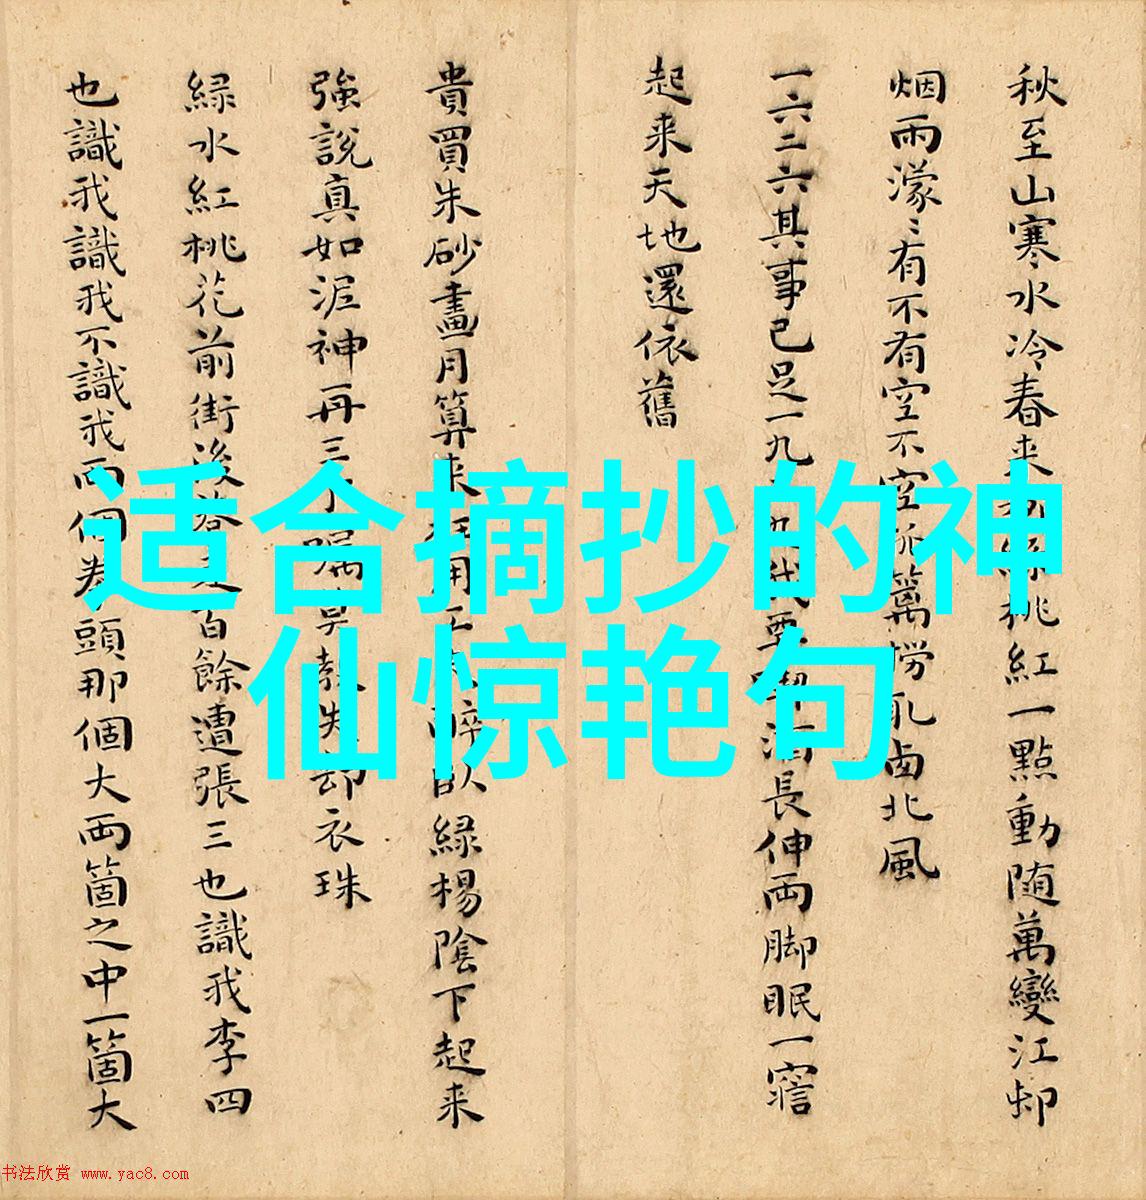 秋至山寒水冷春来
桃紅一點動随萬變江邨
烟雨濛〻有不有空不空
萬撈乿卤北風
一六二六其事已足一九
長伸両脚眠一寤
起来天地還依舊
貴買朱砂畫月算来
卧緑楊陰下起来
強說真如泥神再三
却衣珠
緑水紅桃花前街後
百餘遭張三也識我李四
也識我識我不識我両個
拳頭那個大両箇之中一箇大
适合摘抄的神
仙惊艳句
书法欣赏 www.yac8.com